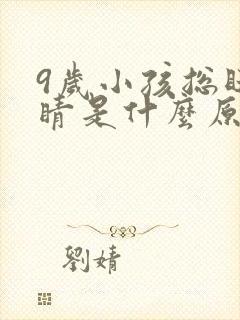 9歲小孩總眨
睛是什麼原
劉婧